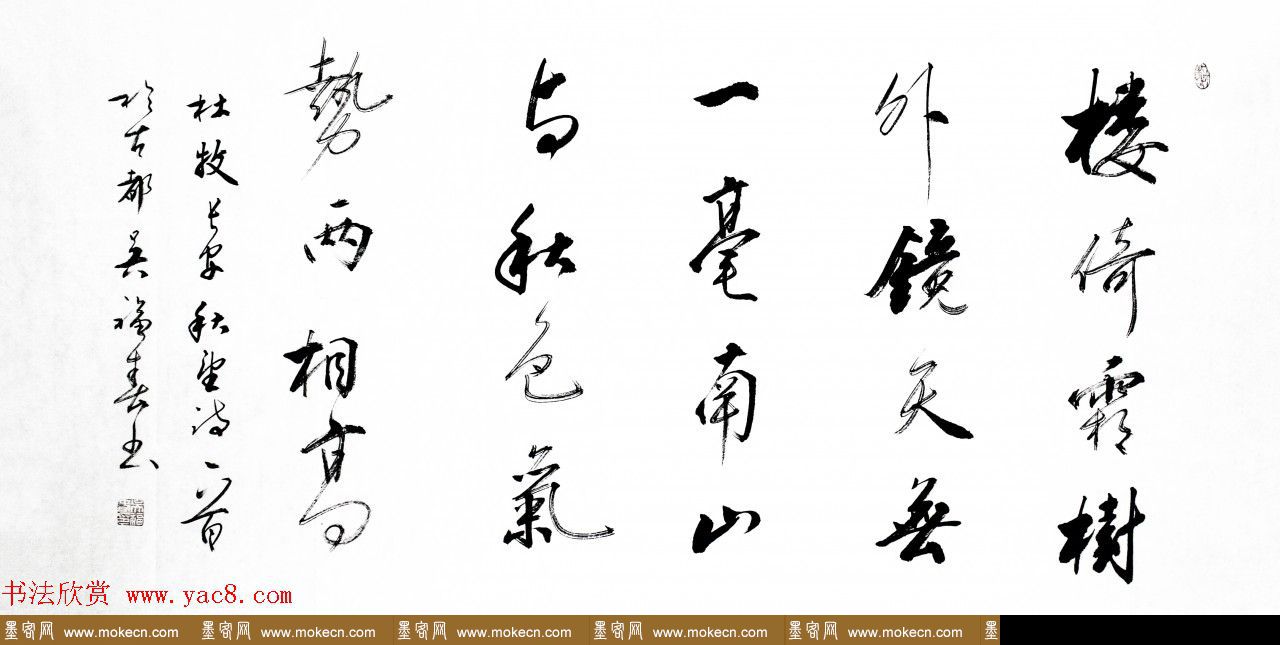 楼倚霜樹
外鏡天無
一毫南山
与秋色氣
勢兩相高
杜牧長安秋望詩一首
於古都吴福春书
书法欣赏 www.yac8.com
墨客网 www.mokecn.com 墨客网 www.mokecn.com 墨客网 www.mokecn.com 墨客网 www.mokecn.com 墨客网 www.mokecn.com 墨